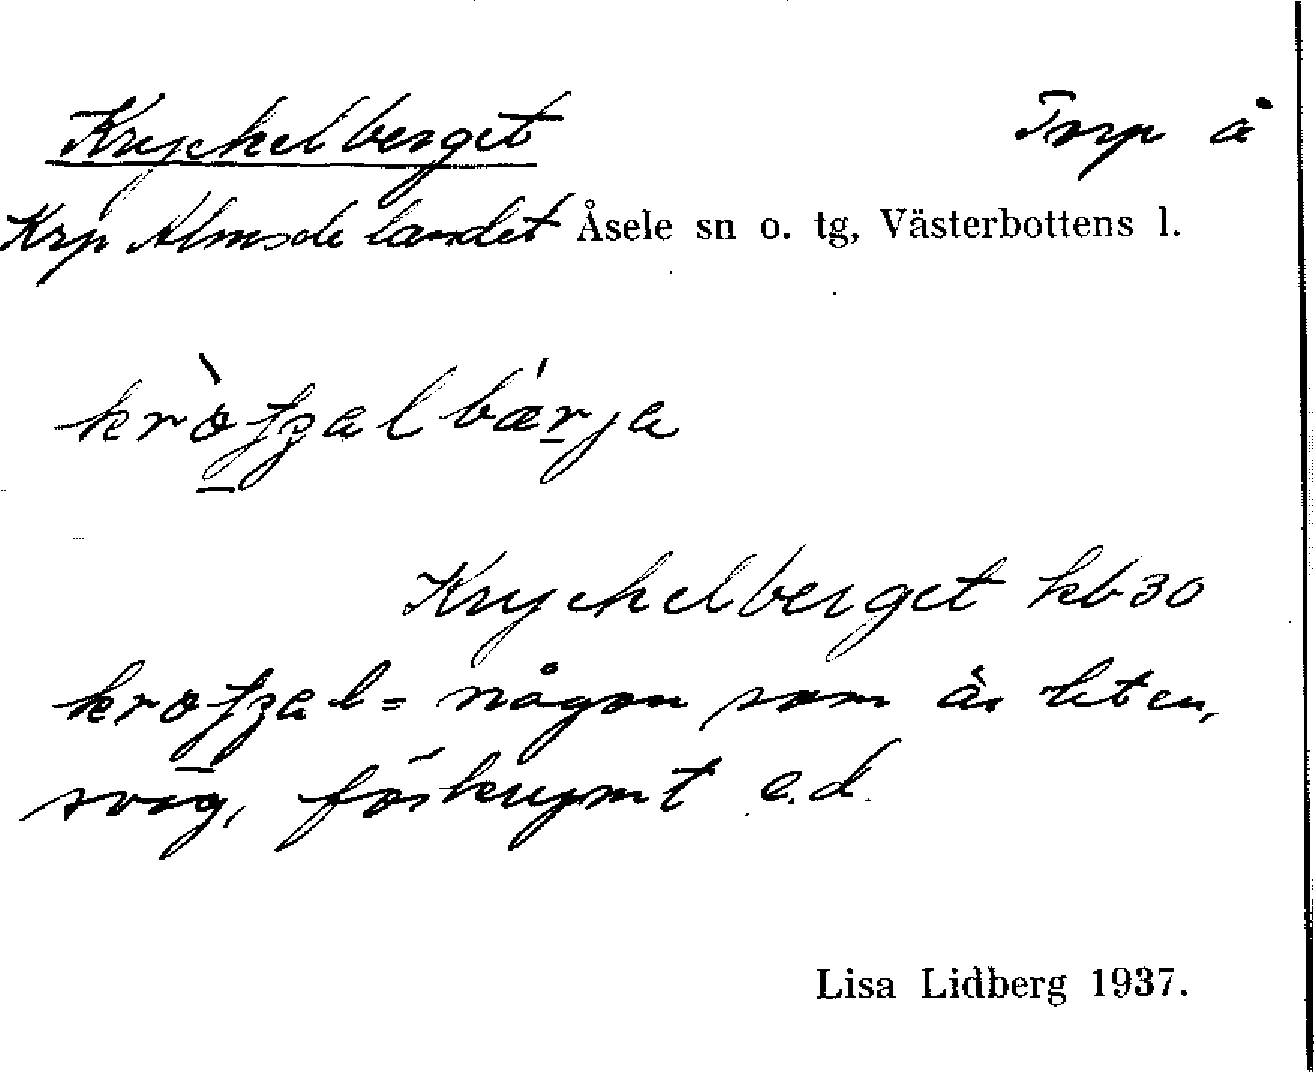 Kryckelberget Torp å
Krp Almselelandet Åsele sn o. tg, Västerbottens l.
kròʃʒalbǽrja
Kryckelberget kb 30
kroʃʒal = någon som är liten,
svag, förkrympt e.d.
Lisa Lidberg 1937.